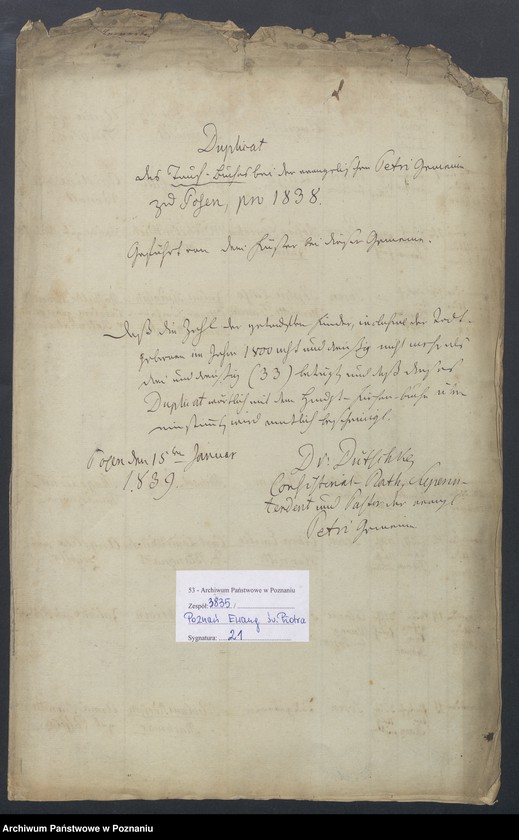 Duplicat
des Tauf-Buches bei der evangelischen Petri Gemeine
zu Posen, pro 1838.
Geführt von dem Küster bei dieser Gemeine.
Daß die Zahl der getauften Kinder, inclusive der Todt-
geborenen im Jahre 1800 acht und dreißig nicht mehr als
drei und dreißig (33) beträgt, und daß dieses
Duplicat wörtlich mit dem Haupt-Kirchenbuche über
einstimmt, wird amtlich bescheinigt.
Posen den 15ten Januar
1839.
Dr. Dütschke,
Consistorial-Rath, Superin-
tendent und Pastor der evangl
Petri Gemeine
53 - Archiwum Państwowe w Poznaniu
Zespół: 3835,
Poznań Ewang. Św. Piotra
Sygnatura: 21
Archiwum Państwowe w Poznaniu
Archiwum Państwowe w Poznaniu